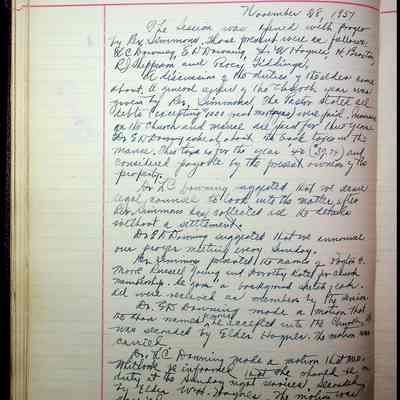 November 28, 1957
The session was opened with prayer
by Rev. Simmons. Those present were as follows:
L.C. Downing, E.D. Downing, W. Haynes, H.
R. Sheppard and Giddings.
A discussion of the duties of the elders came
about. A general report of the church year was
given by Rev. Simmons. The Pastor stated all
debts (excepting 1000 mortgage) were paid. Insurance
on the Church and manse are paid for three years.
Dr. E.D. Downing asked about the back taxes on the
manse. This tax is for the year and
considered payable by the present owners of the
property.
Dr. L.C. Downing suggested that we leave
legal counsel to look into the matter, after
Rev. Simmons has collected all the details
without a settlement.
Dr. E.D. Downing suggested that we announce
our prayer meeting every Sunday.
Rev. Simmons presented the names of
Russell Young and Dorothy for church
membership. He gave a background sketch, each.
All were received as members by the session.
Dr. E.D. Downing made a motion that
the above named be accepted into the Church. It
was seconded by Elder Haynes. The motion was
carried.
Dr. L.C. Downing made a motion that Mrs.
be informed that she should be on
duty at the Sunday night services. Seconded
by Elder W. Haynes. The motion was